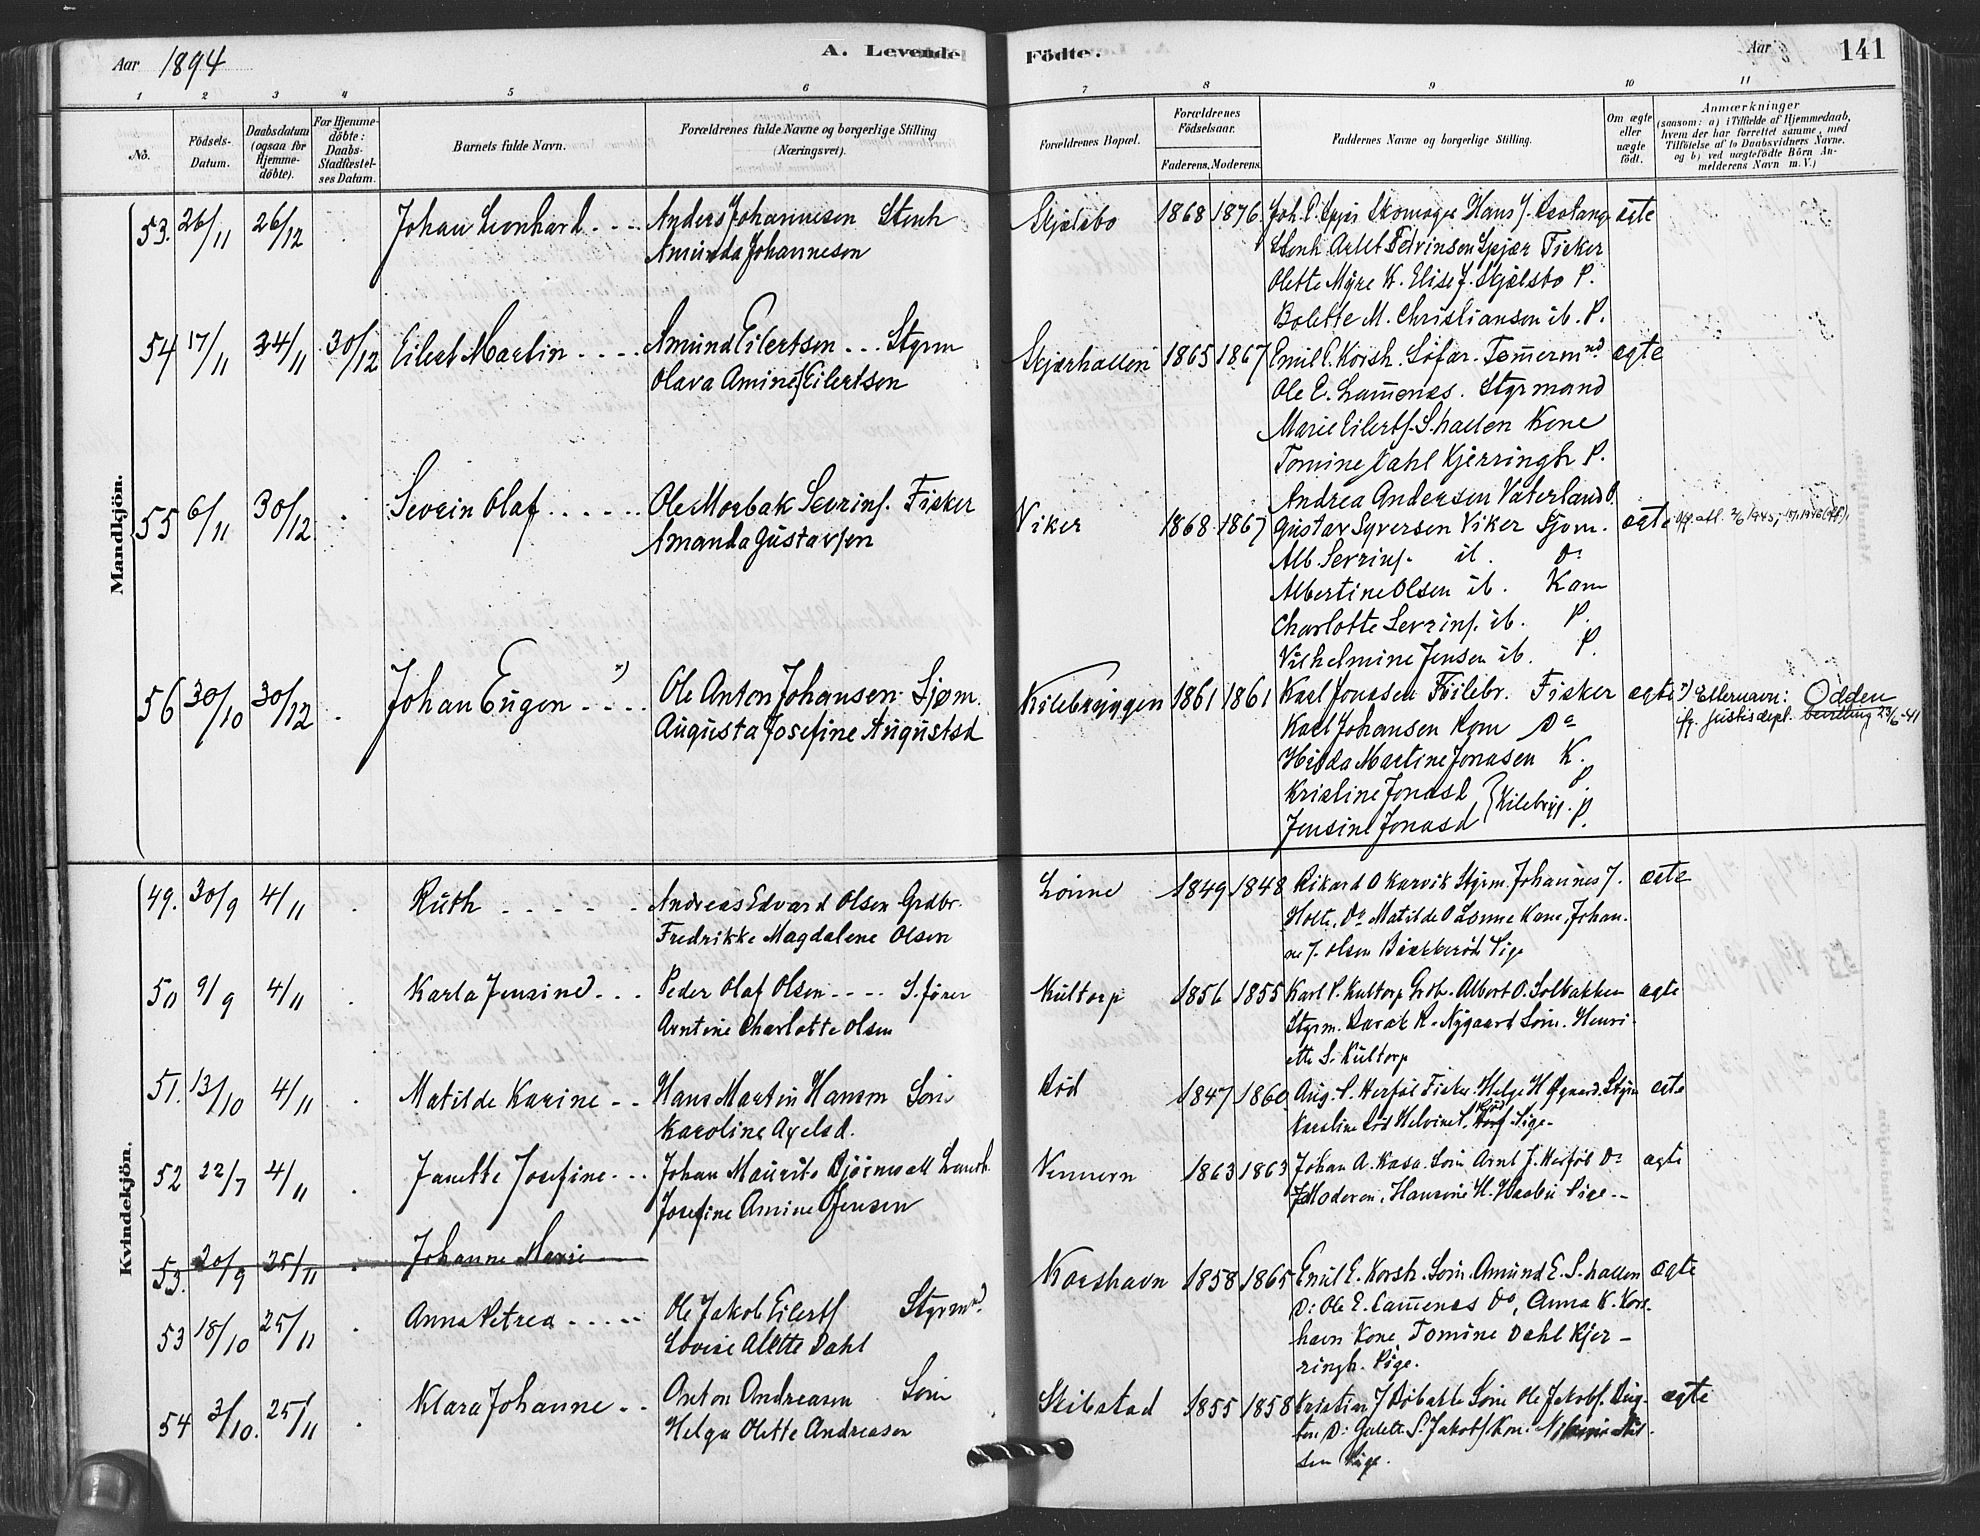 Aar 1894
A. Levende Födte.
Aar 141
1 2 3 4 5 6 7 8 9 10 11
No.
Födsels-Datum.
Daabsdatum (ogsaa for Hjemme-döbte).
For Hjemme-döbte: Daabs-Stadfæstel-ses Datum.
Barnets fulde Navn.
Forældrenes fulde Navne og borgerlige Stilling (Næringsvei).
Forældrenes Bopæl.
Forældrenes Födselsaar.
Faderens. Moderens.
Faddernes Navne og borgerlige Stilling.
Om ægte eller uægte födt.
Anmærkninger
(saasom: a) i Tilfælde af Hjemmedaab, hvem der har forrettet samme, med Tilföielse af to Daabsvidners Navne. og b) ved uægtefödte Börn An-melderens Navn m. V.)
Mandkjön.
53. 26/11 26/12 Johan Leonhard Anders Johannesen Stenh Skjælsbo 1868 1876 Hans J. ægte
Amunda Johannesen Fisker
Olette Myre K. Elise J. Skjælsbo P.
Bolette M. Christiansen ib. P.
54 17/11 24/11 30/12 Eilert Martin Amund Eilertsen Styrm Skjærhallen 1865 1867 Emil E. Korsh. Söfar. Tømermnd ægte
Olava Amine Eilertsen Ole E. Styrmand
Marie Eilertf. S.hallen Kone
Tomine Dahl Kjerringh P.
Andrea Andersen Vaterland P.
55 6/11 30/12 Severin Olaf Ole Morbak Sevrinf. Fisker Viker 1868 1867 Gustav Syversen Viker Sjøm. ægte
Amanda Gustavsen Alb. Sevrinf. ib. Do
Albertine Olsen ib. Kone
Charlotte Sevrinf. ib. P.
Vilhelmine Jensen ib. P.
56 30/10 30/12 Johan Eugen x) Ole Anton Johansen Sjøm. Kilebryggen 1861 1861 Karl Jonasen Kilebr. Fisker ægte x) Etternavn: Odden
Augusta Josefine Augustsd Karl Johansen Kom Do ifg. justisdepl. bevilling 23/6-41
Hilda Martine Jonasen K.
Kristine Jonasd P.
Jensine Jonasd Kilebryg. P.
Kvindekjön.
49. 30/9 4/11 Ruth Andreas Edvard Olsen Grdbr. Lønne 1849 1848 Rikard O Karvik Styrm. Johannes J. ægte
Fredrikke Magdalene Olsen Holte, Do Matilde O Lønne Kone, Johan-
ne J. Olsen Bækkerød Pige
50 9/9 4/11 Karla Jensine Peder Olaf Olsen S.fører Kultorp 1856 1855 Karl P. Kultorp Grdb. Albert O. Solbakken ægte
Arntine Charlotte Olsen Styrm. R. Nygaard Henri-
ette S. Kultorp
51. 13/10 4/11 Matilde Karine Hans Martin Hansen Søm Rød 1847 1860 Aug. P. Herføl Fisker. Helge H Øgaard. Styrm ægte
Karoline Axelsd. Karoline Rød Pige
52 22/7 4/11 Janette Josefine Johan Maurits Bjørnvall Vennern 1863 1863 Johan A. Kasa. Søm Arnt J. Herføl Do ægte
Josefine Amine Jensen Moderen. Hansine H. Pige
53. 20/9 25/11 Johanne Marie
53 18/10 25/11 Anna Petrea Ole Jakob Eilertf Styrmd. Korshavn 1858 1865 Emil E. Korsh. Søm. Amund E. S.hallen ægte
Lovise Alette Dahl D: Ole E. Do, Anna K. Kors-
havn Kone, Tomine Dahl Kjer-
ringh. Pige.
54 3/10. 25/11 Klara Johanne Anton Andreasen Søm Skibstad 1855 1858 Kristian J Søm Ole Jakobf. ægte
Helga Olette Andreasen Jakobf Kon.
sen Pige.